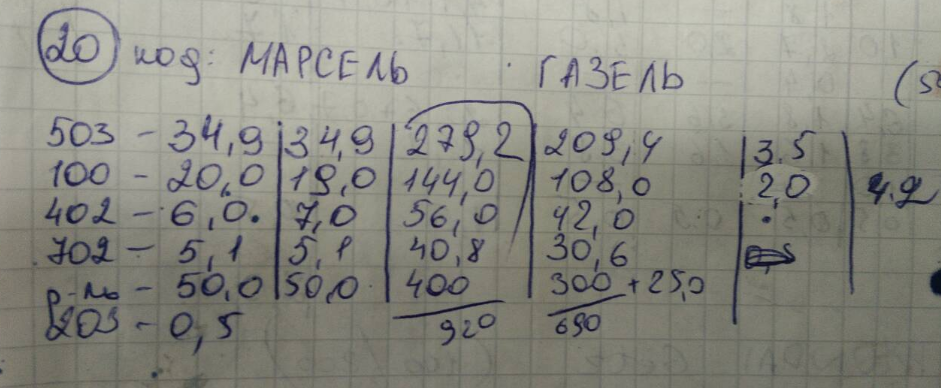 20 код: МАРСЕЛЬ ГАЗЕЛЬ
503 - 34,9 34,9 279,2 209,4 3.5
100 - 20,0 19,0 144,0 108,0 2,0 4.2
402 - 6,0. 7,0 56,0 42,0
702 - 5,1 5,1 40,8 30,6
р-ль - 50,0 50,0 400 300 + 25,0
203 - 0,5 920 690